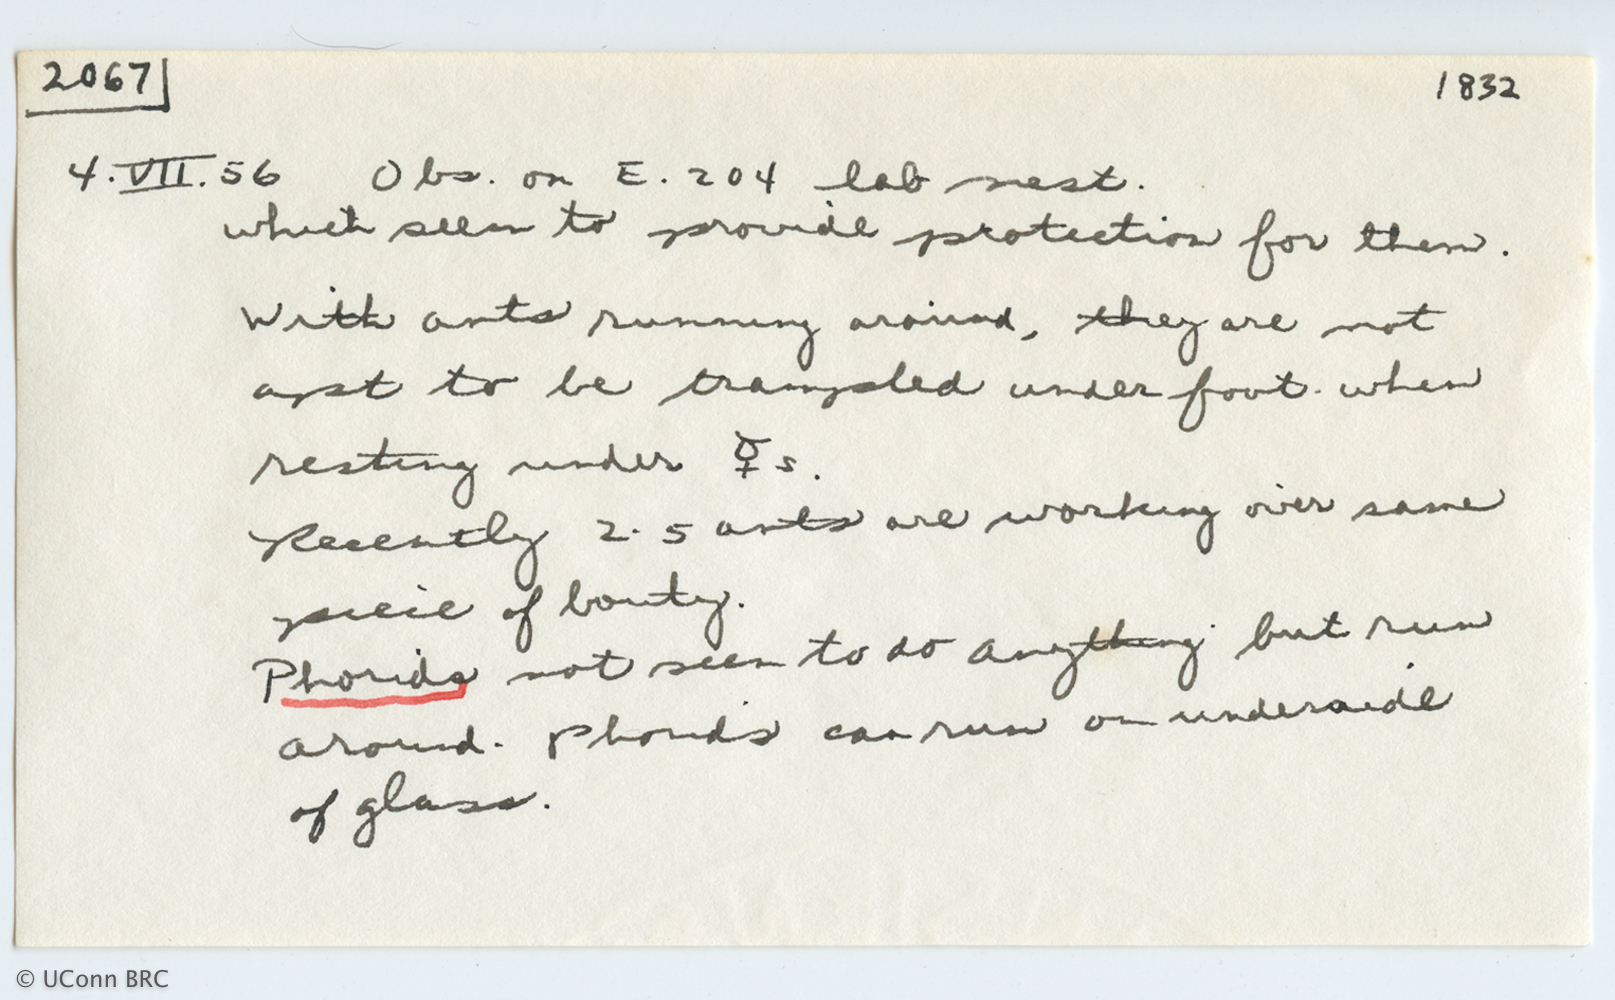 2067
1832
4.VII.56 Obs. on E.204 lab nest.
which seem to provide protection for them.
With ants running around, they are not
apt to be trampled under foot when
resting under ☿s.
Recently 2-5 ants are working over same
piece of booty.
Phorids not seen to do anything but run
around. Phorids can run on underside
of glass.
© UConn BRC